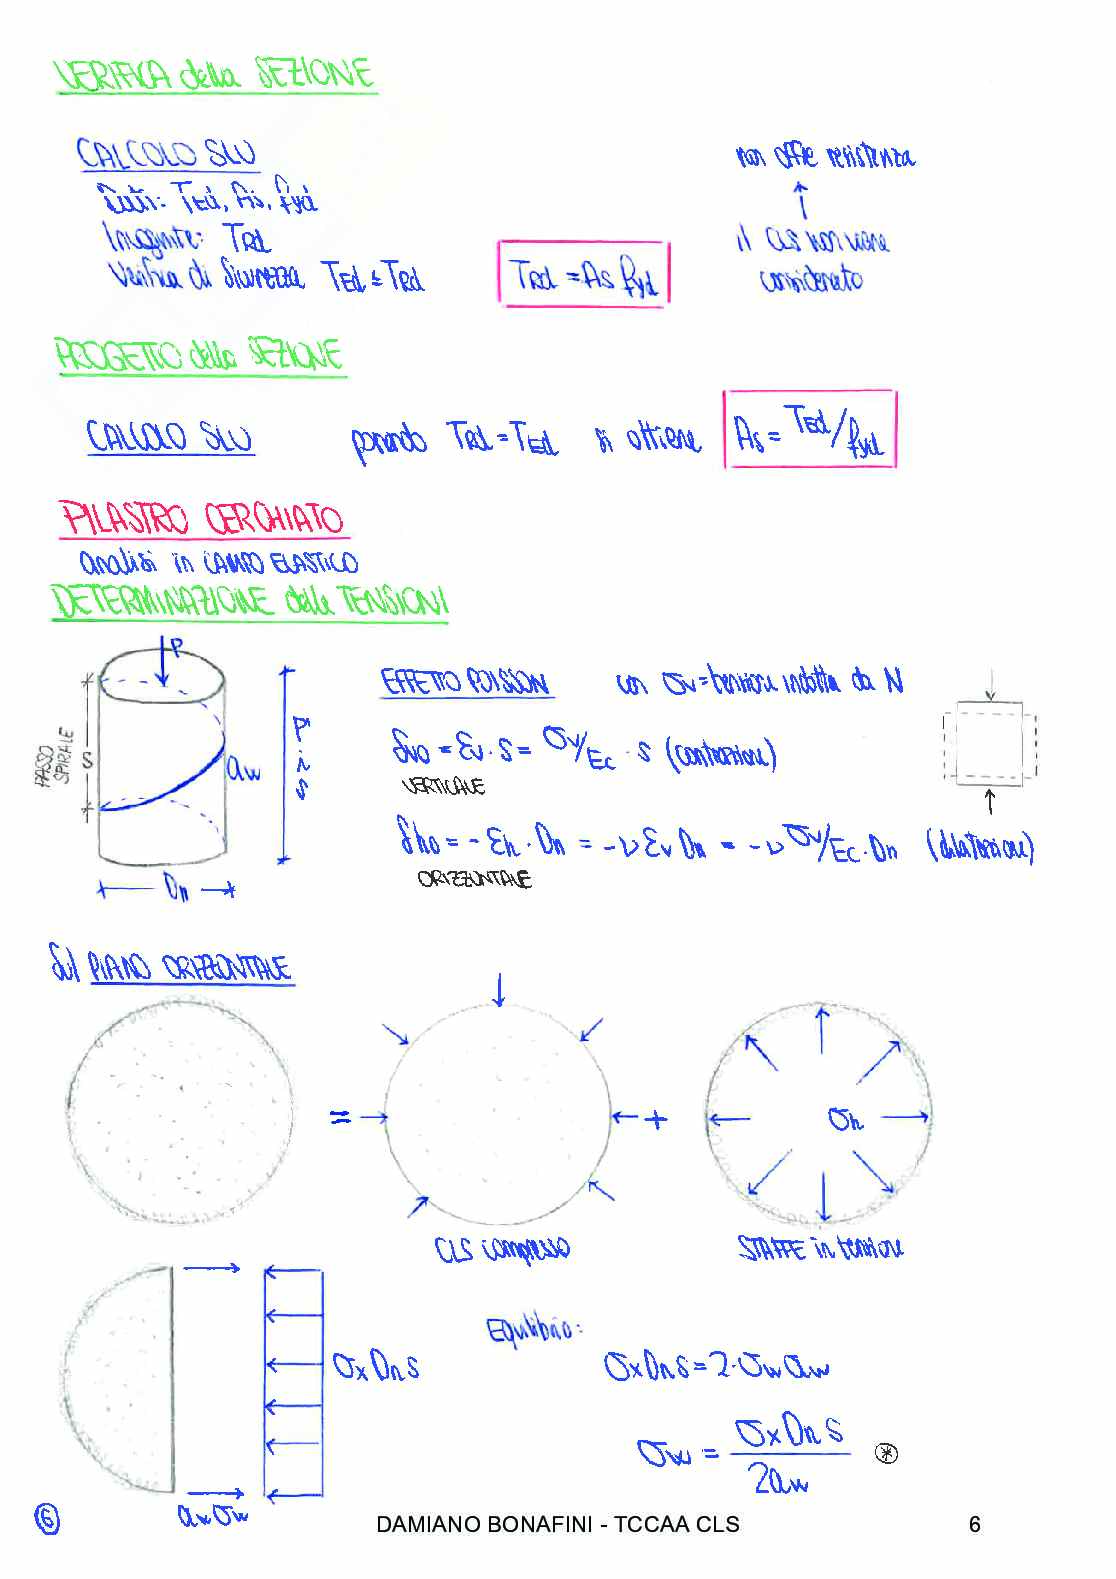 VERIFICA della SEZIONE
CALCOLO SLU
Dati: TEd, As, fyd
Incognite: TRd
Verifica di Sicurezza TEd ≤ TRd
TRd = As fyd
non offre resistenza
↑
il CLS non viene
considerato
PROGETTO della SEZIONE
CALCOLO SLU ponendo TRd = TEd si ottiene As = TEd/fyd
PILASTRO CERCHIATO
analisi in CAMPO ELASTICO
DETERMINAZIONE delle TENSIONI
P
PASSO
SPIRALE
S
aw
Dn
EFFETTO POISSON con σv = tensione indotta da N
δvo = εv · s = σv/Ec · s (contrazione)
VERTICALE
δho = - εh · Dn = -ν εv Dn = -ν σv/Ec · Dn (dilatazione)
ORIZZONTALE
Sul PIANO ORIZZONTALE
= + σh
CLS compresso
STAFFE in tensione
σx Dn s
aw σw
Equlibrio:
σx Dn s = 2 · σw aw
σw = σx Dn s / 2aw ⊛
6
DAMIANO BONAFINI - TCCAA CLS
6